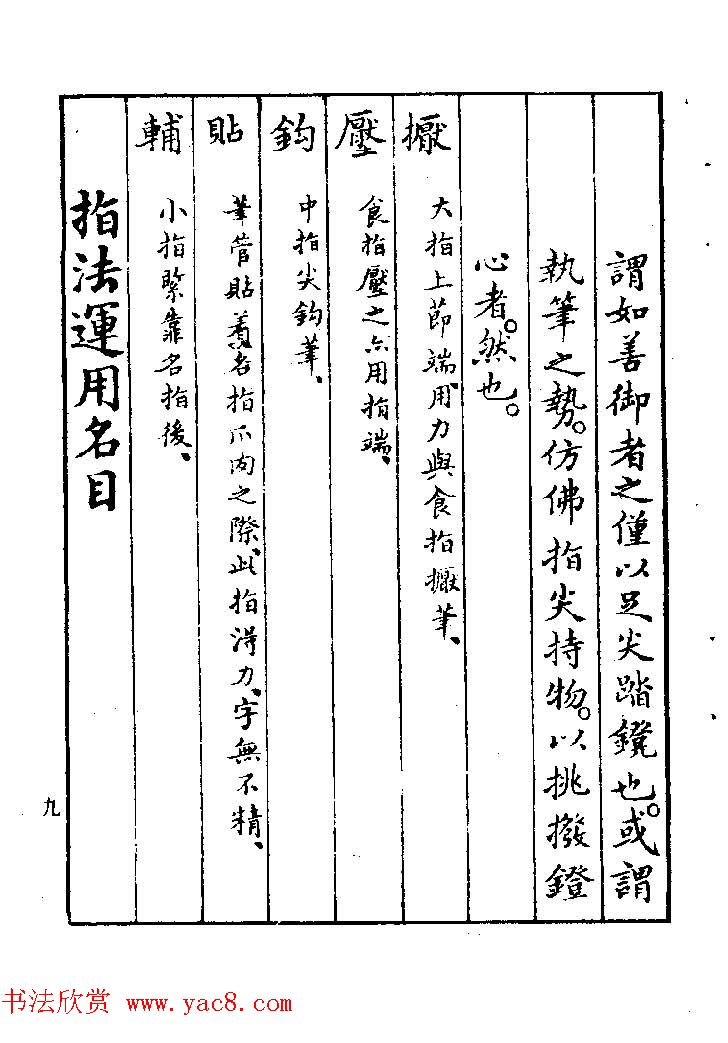 謂如善御者之僅以足尖踏鐙也。或謂
執筆之勢。仿佛指尖持物。以挑撥鐙
心者。然也。
擫 大指上節端、用力與食指擫筆、
壓 食指壓之亦用指端、
鈎 中指尖鈎筆、
貼 筆管貼着名指爪肉之際、此指得力、字無不精、
輔 小指緊靠名指後、
指法運用名目
九
书法欣赏 www.yac8.com